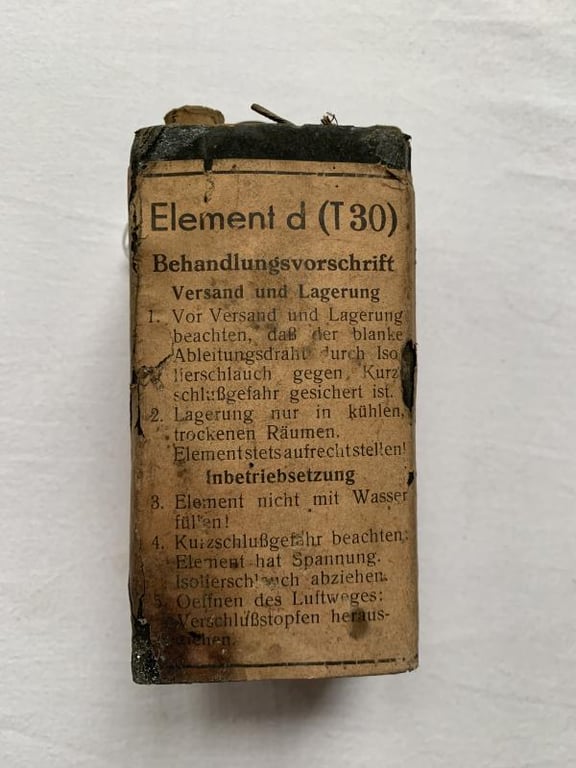 Element d (T 30)
Behandlungsvorschrift
Versand und Lagerung
1. Vor Versand und Lagerung
beachten, daß der blanke
Ableitungsdraht durch Iso
lierschlauch gegen Kurz
schlußgefahr gesichert ist.
2. Lagerung nur in kühlen,
trockenen Räumen.
Element stets aufrecht stellen!
Inbetriebsetzung
3. Element nicht mit Wasser
füllen!
4. Kurzschlußgefahr beachten;
Element hat Spannung.
Isolierschlauch abziehen.
5. Oeffnen des Luftweges:
Verschlußstopfen heraus-
ziehen.